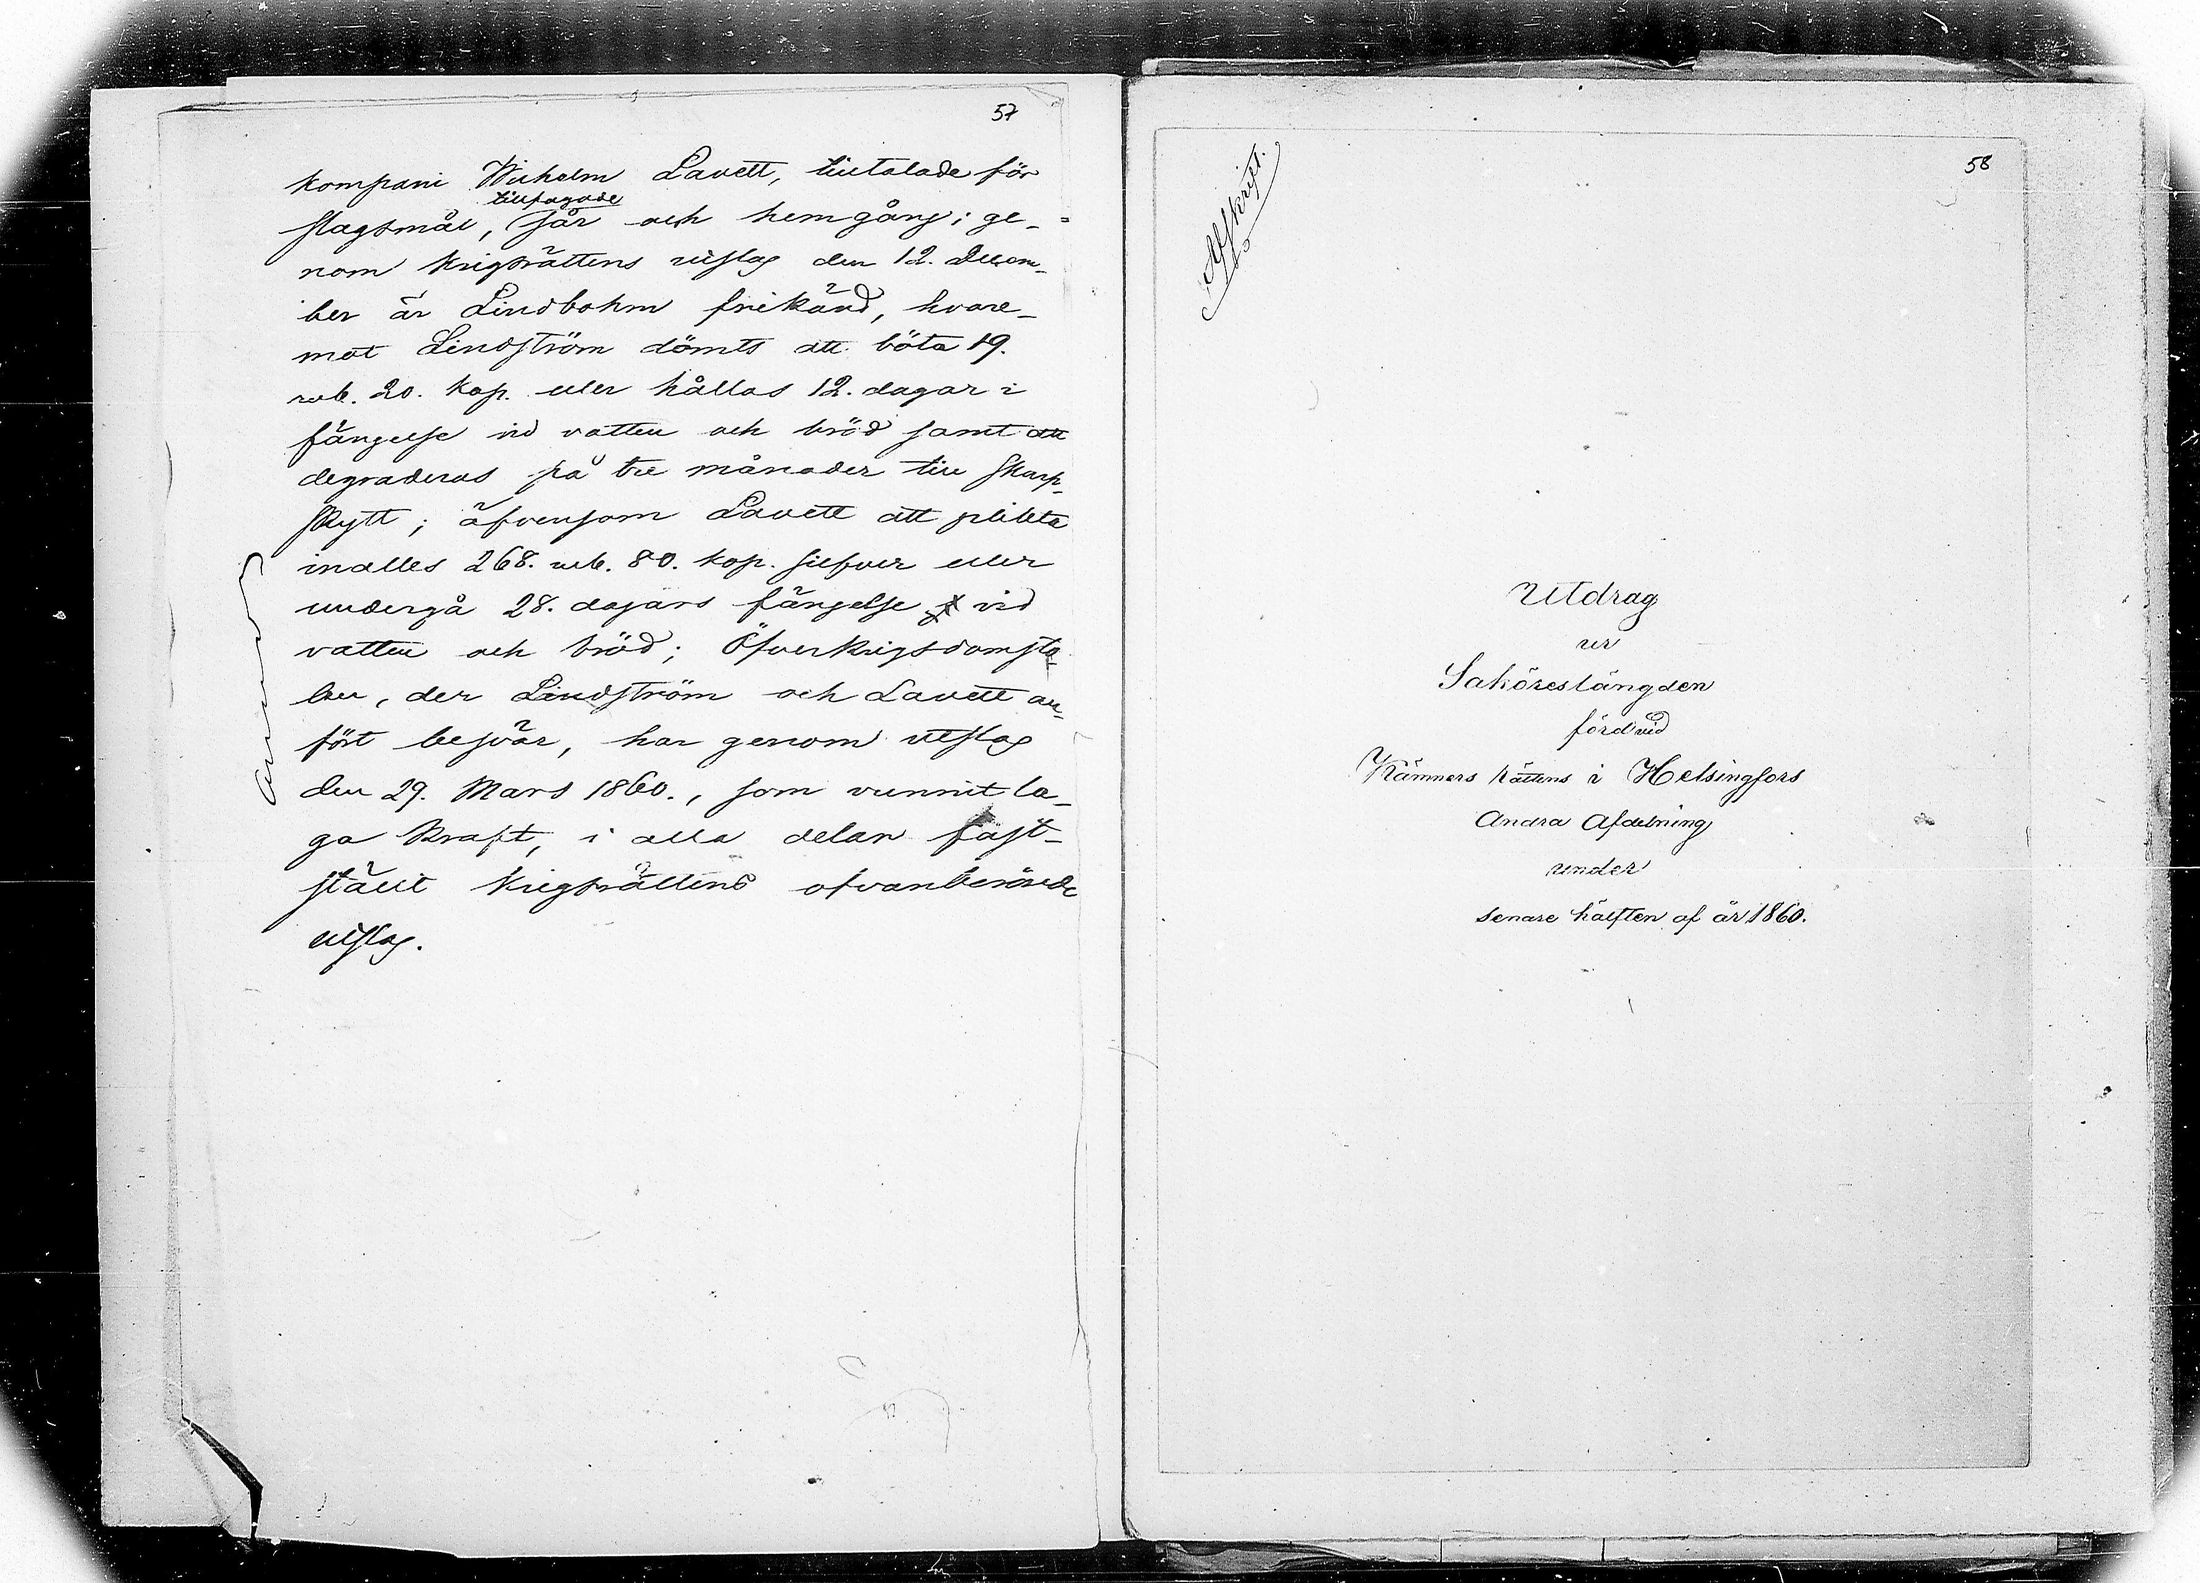 57
kompani Wilhelm Lavett, tilltalade för
tillfogade
slagsmål, sår och hemgång; ge-
nom krigsrättens utslag den 12. Decem-
ber är Lindbohm frikänd, hvare-
mot Lindström dömts att böta 19.
rub. 20. kop. eller hållas 12. dagar i
fängelse vid vatten och bröd samt att
degraderas på tre månader till skarp-
skytt; äfvensom Lavett att plikta
inalles 268. rub. 80. kop. silfver eller
undergå 28. dagars fängelse vid
vatten och bröd; Öfverkrigsdomsto-
len, der Lindström och Lavett an-
fört besvär, har genom utslag
den 29. Mars 1860., som vunnit la-
ga kraft, i alla delar fast-
stält krigsrättens ofvanberörde
utslag.
58
Afskrift.
Utdrag
ur
Saköreslängden
förd vid
Kämners Rättens i Helsingfors
Andra Afdelning
under
senare hälften af år 1860.